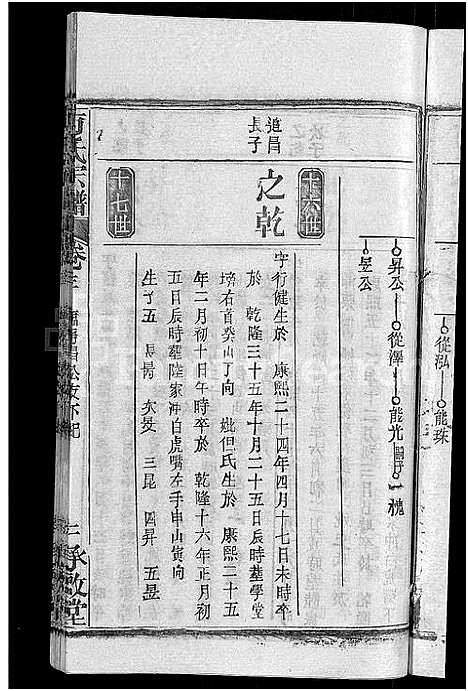 從泓 能珠
昇公 從澤 能光 嗣子 槐
昱公
十六世
追昌
長子
之乾
字行健生於 康熙二十四年四月十七日未時卒
於 乾隆三十五年十月二十五日辰時塟學堂
塝右首癸山丁向 妣但氏生於 康熙二十五
年二月初十日午時卒於 乾隆十六年正月初
五日辰時塟陸家冲白虎嘴左手申山寅向
生子五 三昆 四昇 五昱
十七世
氏宗譜
卷三
三 承啟堂